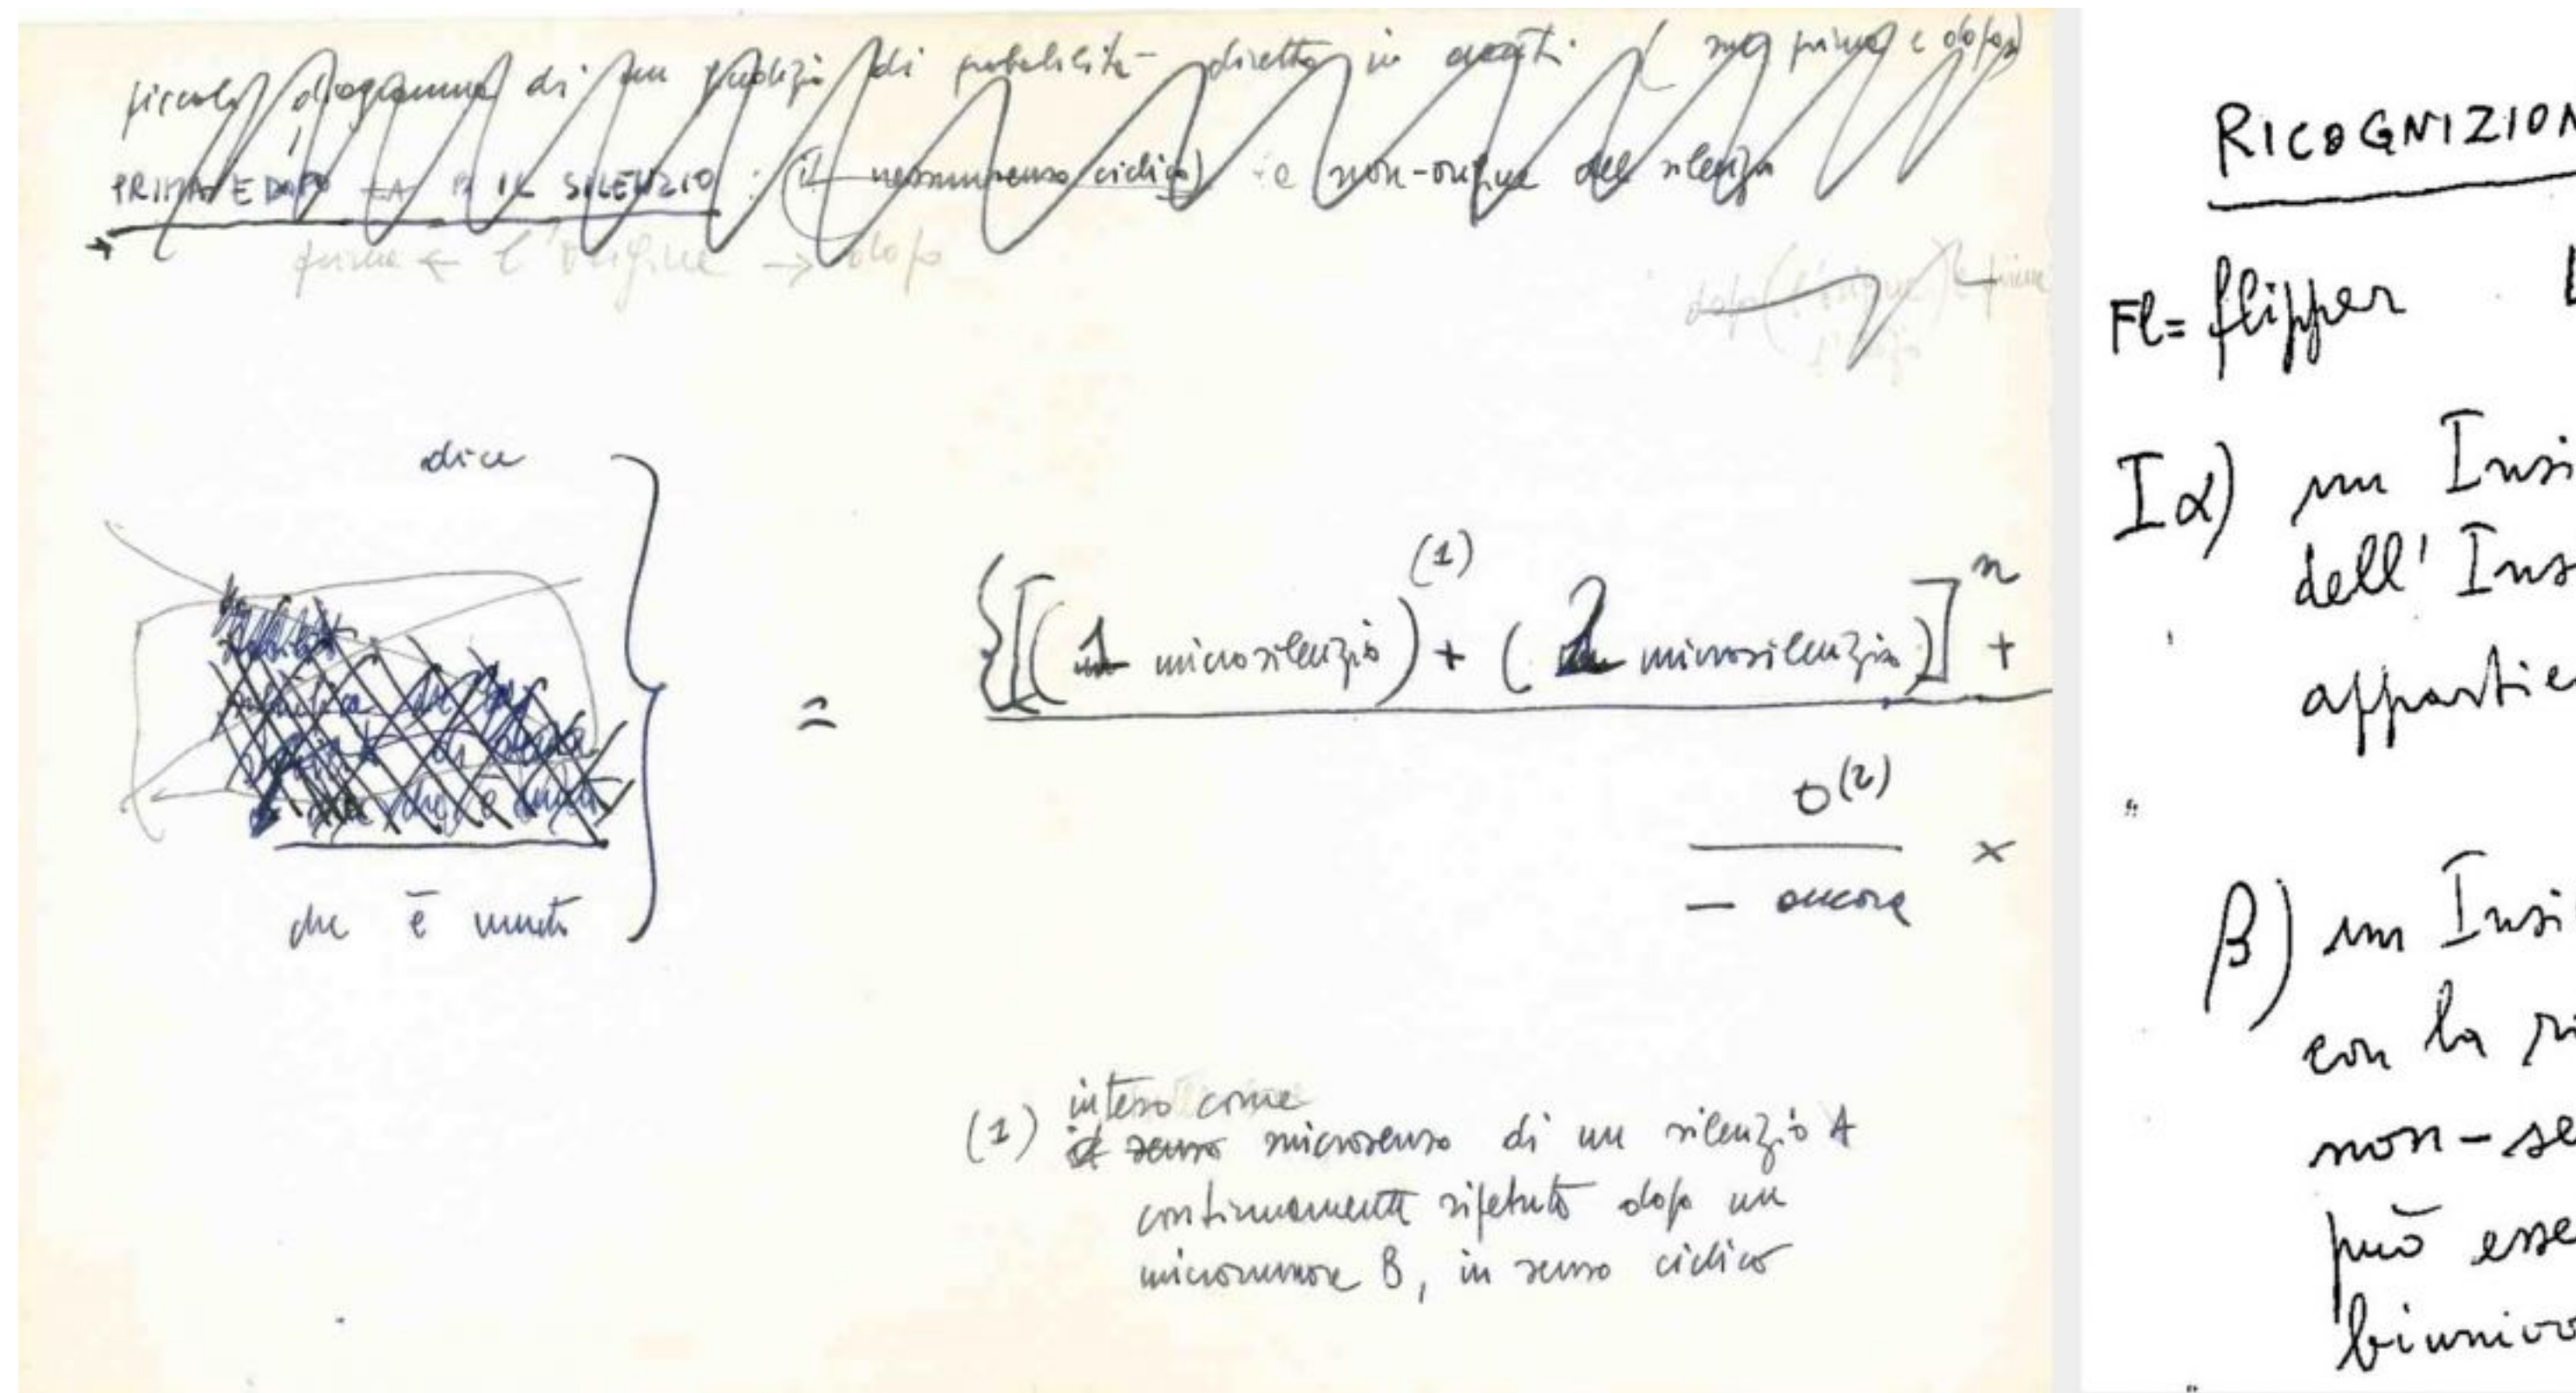 piccolo diagramma di un giudizio di probabilità - diretto in avanti. ( prima e dopo)
PRIMA E DOPO IL SILENZIO : (il nessun senso ciclico) e non-origine del silenzio
prima ← l'origine → dopo
dopo (l'origine) e prima
dice
che è muto
=
{[(1 microsilenzio)(1) + (2 microsilenzio)]n +
o(2)
— ancora
×
(1) inteso come
il senso microsenso di un silenzio A
continuamente ripetuto dopo un
microrumore B, in senso ciclico
RICOGNIZION
Fl= flipper
Iα) un Insi
dell' Ins
appartie
"
β) un Insi
con la ri
non-se
può esse
biunivo